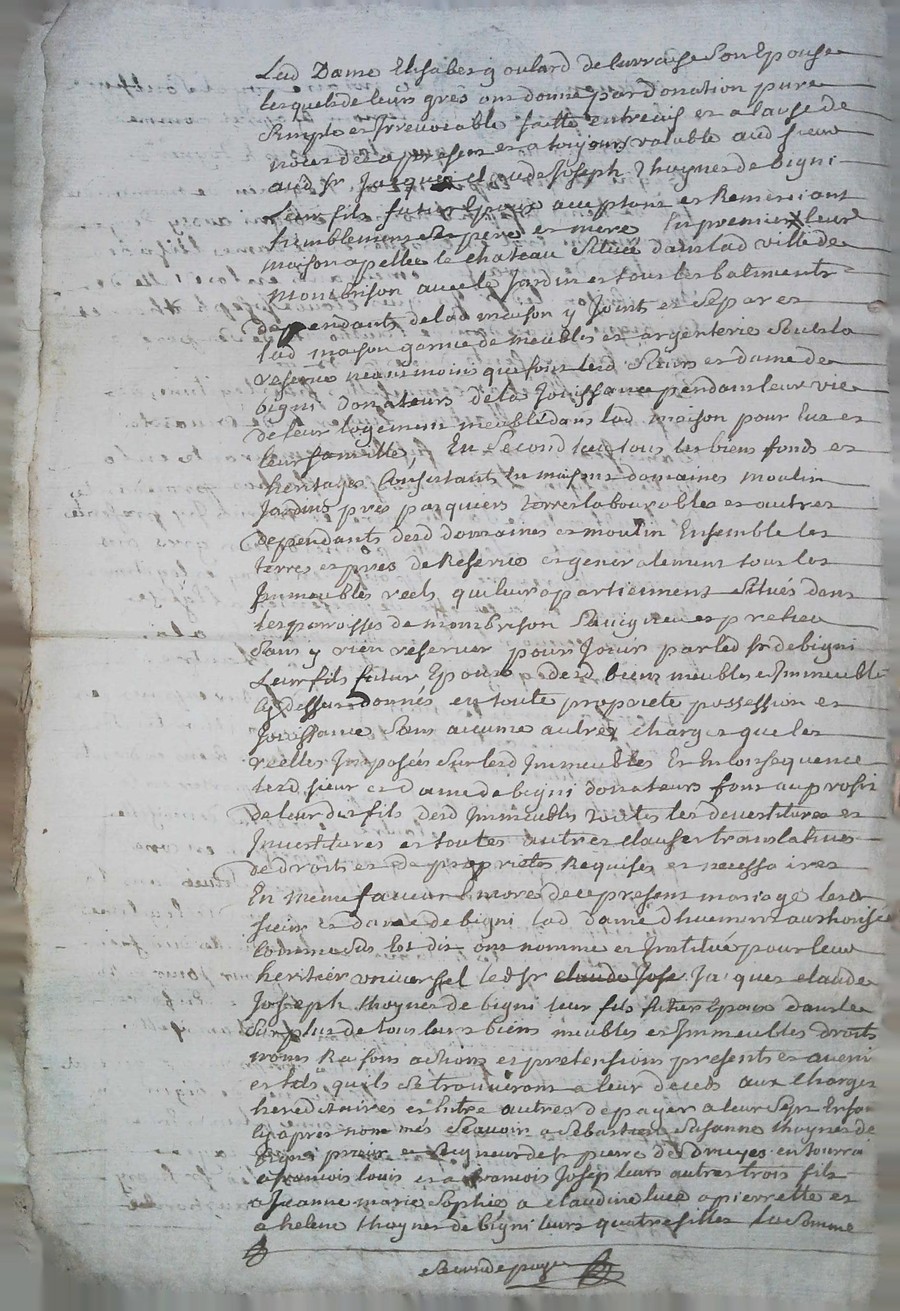 Lad Dame Elisabeth goulard de Curraise son Epouse
lesquels de leurs grés ont donné par donation pure
simple et Irrevocable faitte entrevifs et a cause de
nopces des a present et a toujours valable aud sieur
aud Sr Jacques claude Joseph thoynet de bigni
Leur fils futur Epoux acceptant et Remerciant
humblement ses pere et mere En premier leur
maison apellee le chateau Situee dans lad ville de
Montbrison avec le Jardin et tous les batiments
dependants de lad maison y Joints et Separes
lad maison garnie de meubles et argenteries Soubs la
reserve neanmoins que font lesd Sieurs et dame de
bigni donateurs de la Jouissance pendant leur vie
de leur logement meublé dans lad maison pour Eux et
leur famille, En Second lieu tous les biens fonds et
heritages Consistants En maisons domaines moulin
Jardins prés pasquiers terres labourables et autres
dependants desd domaines et moulin Ensemble les
terres et prés de Reserve et generalement tous les
Immeubles reels qui leur apartiennent Situés dans
les paroisses de montbrison Savigneu et pretieu
Sans y rien réserver pour Jouir par led Sr de bigni
Leur fils futur Epoux desd biens meubles et Immeubles
Cy dessus donnés en toute proprieté possession et
Jouissance Sans aucune autres charges que les
réelles Imposées Sur lesd Immeubles Et En Consequence
lesd sieur et dame de bigni donateurs font au profit
de leur dit fils desd Immeubles toutes les devestitures et
Investitures et toutes autres clauses translatives
de droit et de proprieté Requises et necessaires
En meme faveur Encore de ce present mariage lesd
sieur et dame de bigni lad dame d'huement authorisée
Comme dit ont nommé et Institué pour leur
heritier universel led Sr claude Jose Jacques claude
Joseph thoynet de bigni leur fils futur Epoux dans le
Surplus de tous leurs biens meubles et Immeubles droits
noms Raisons actions et pretensions presents et avenir
et tels qu'ils se trouveront a leur decés aux Charges
hereditaires et Entre autres de payer a leur Sept Enfa
Cy après nommés Scavoir a Sebastien Susanne thoynet de
Bigni prieur et Seigneur de St pierre de Druyes en tourrai
a francois louis et a francois Josep leurs autres trois fils
a Jeanne marie Sophie a claudine luce a pierrette et
a helene thoynet de bigni leurs quatre filles La Somme